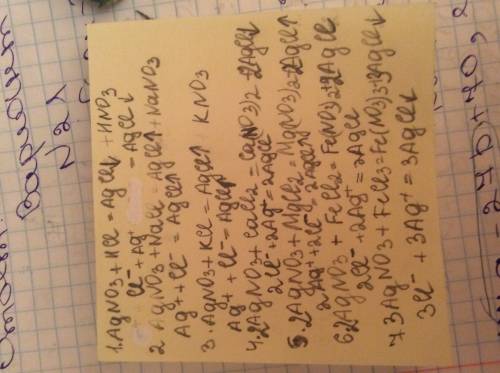 Вариант
N21
1. AgNO3 + HCl = AgCl↓ + HNO3
Cl⁻ + Ag⁺ = AgCl↓
2 AgNO3 + NaCl = AgCl↑ + NaNO3
Ag⁺ + Cl⁻ = AgCl↑
3. AgNO3 + KCl = AgCl↑ KNO3
Ag⁺ + Cl⁻ = AgCl↑
4. 2AgNO3 + CaCl2 = Ca(NO3)2 + 2AgCl↓
2Cl⁻ + 2Ag⁺ = 2AgCl
5. 2AgNO3 + MgCl2 = Mg(NO3)2 + 2AgCl↑
2Ag⁺ + 2Cl⁻ = 2AgCl↑
6. 2AgNO3 + FeCl2 = Fe(NO3)2 + 2AgCl
2Cl⁻ + 2Ag⁺ = 2AgCl
7 3AgNO3 + FeCl3 = Fe(NO3)3 + 3AgCl↓
3Cl⁻ + 3Ag⁺ = 3AgCl↓